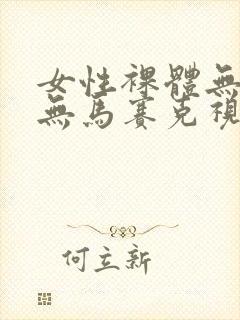 女性裸體無
無馬賽克視
何立新